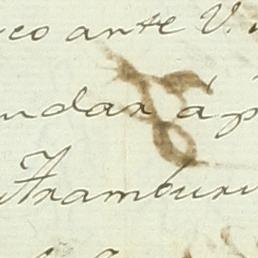 co ante V.
ndar á p
Aramburu